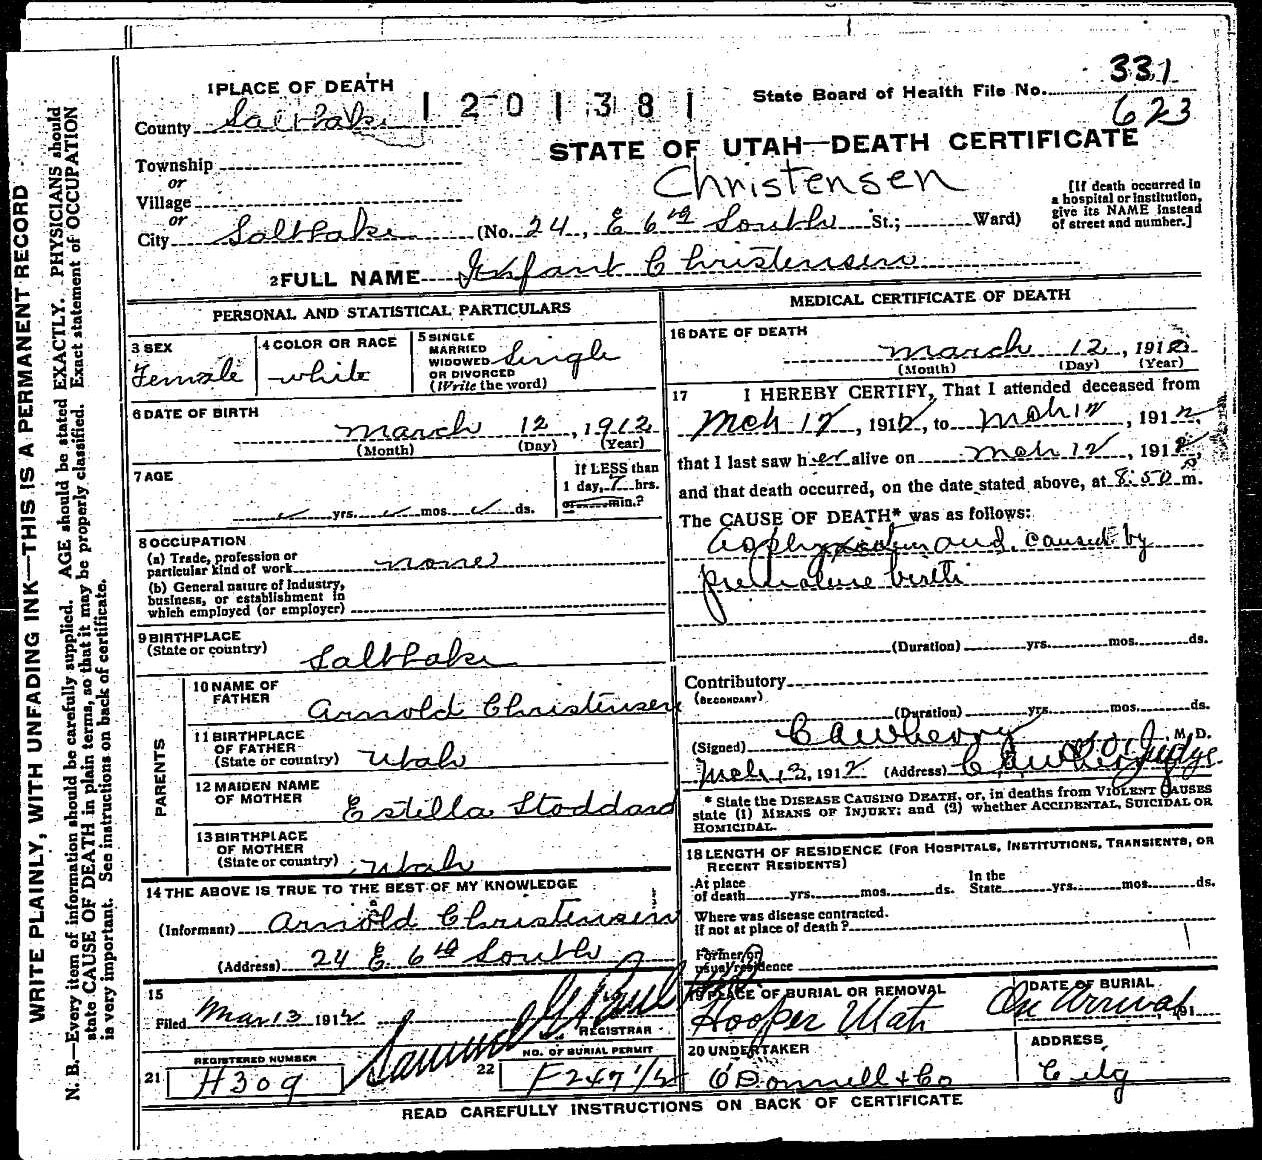 1 PLACE OF DEATH
County Salt Lake
1201381
State Board of Health File No. 331
623
STATE OF UTAH—DEATH CERTIFICATE
Christensen
Township
or
Village
or
City Salt Lake (No. 24, E 6th South St.; Ward)
[If death occurred in
a hospital or institution,
give its NAME instead
of street and number.]
2 FULL NAME Infant Christensen
PERSONAL AND STATISTICAL PARTICULARS
3 SEX
Female
4 COLOR OR RACE
white
5 SINGLE
MARRIED
WIDOWED
OR DIVORCED
(Write the word)
Single
6 DATE OF BIRTH
March 12, 1912
(Month) (Day) (Year)
7 AGE
yrs. mos. ds.
If LESS than
1 day, 7 hrs.
or min.?
8 OCCUPATION
(a) Trade, profession or
particular kind of work none
(b) General nature of industry,
business, or establishment in
which employed (or employer)
9 BIRTHPLACE
(State or country)
Salt Lake
PARENTS
10 NAME OF
FATHER
Arnold Christensen
11 BIRTHPLACE
OF FATHER
(State or country)
Utah
12 MAIDEN NAME
OF MOTHER
Estilla Stoddard
13 BIRTHPLACE
OF MOTHER
(State or country)
Utah
14 THE ABOVE IS TRUE TO THE BEST OF MY KNOWLEDGE
(Informant) Arnold Christensen
(Address) 24 E. 6th South
15
Filed Mar 13 1912
Samuel G. Paul
REGISTRAR
21
REGISTERED NUMBER
H309
22
NO. OF BURIAL PERMIT
F247 1/2
MEDICAL CERTIFICATE OF DEATH
16 DATE OF DEATH
March 12, 1912
(Month) (Day) (Year)
17 I HEREBY CERTIFY, That I attended deceased from
Mch 12, 1912, to Mch 12, 1912,
that I last saw her alive on Mch 12, 1912,
and that death occurred, on the date stated above, at 8.50 P m.
The CAUSE OF DEATH* was as follows:
and caused by
premature birth
(Duration) yrs. mos. ds.
Contributory
(SECONDARY)
(Duration) yrs. mos. ds.
(Signed) M. D.
Mch 13, 1912 (Address) Judge
* State the DISEASE CAUSING DEATH, or, in deaths from VIOLENT CAUSES
state (1) MEANS OF INJURY; and (2) whether ACCIDENTAL, SUICIDAL OR
HOMICIDAL.
18 LENGTH OF RESIDENCE (FOR HOSPITALS, INSTITUTIONS, TRANSIENTS, OR
RECENT RESIDENTS)
At place
of death yrs. mos. ds.
In the
State yrs. mos. ds.
Where was disease contracted.
if not at place of death?
Former or
usual residence
19 PLACE OF BURIAL OR REMOVAL
Hooper Utah
DATE OF BURIAL
On Arrival 191
20 UNDERTAKER
O'Donnell & Co
ADDRESS
City
READ CAREFULLY INSTRUCTIONS ON BACK OF CERTIFICATE
WRITE PLAINLY, WITH UNFADING INK—THIS IS A PERMANENT RECORD
N. B.—Every item of information should be carefully supplied. AGE should be stated EXACTLY. PHYSICIANS should
state CAUSE OF DEATH in plain terms, so that it may be properly classified. Exact statement of OCCUPATION
is very important. See instructions on back of certificate.